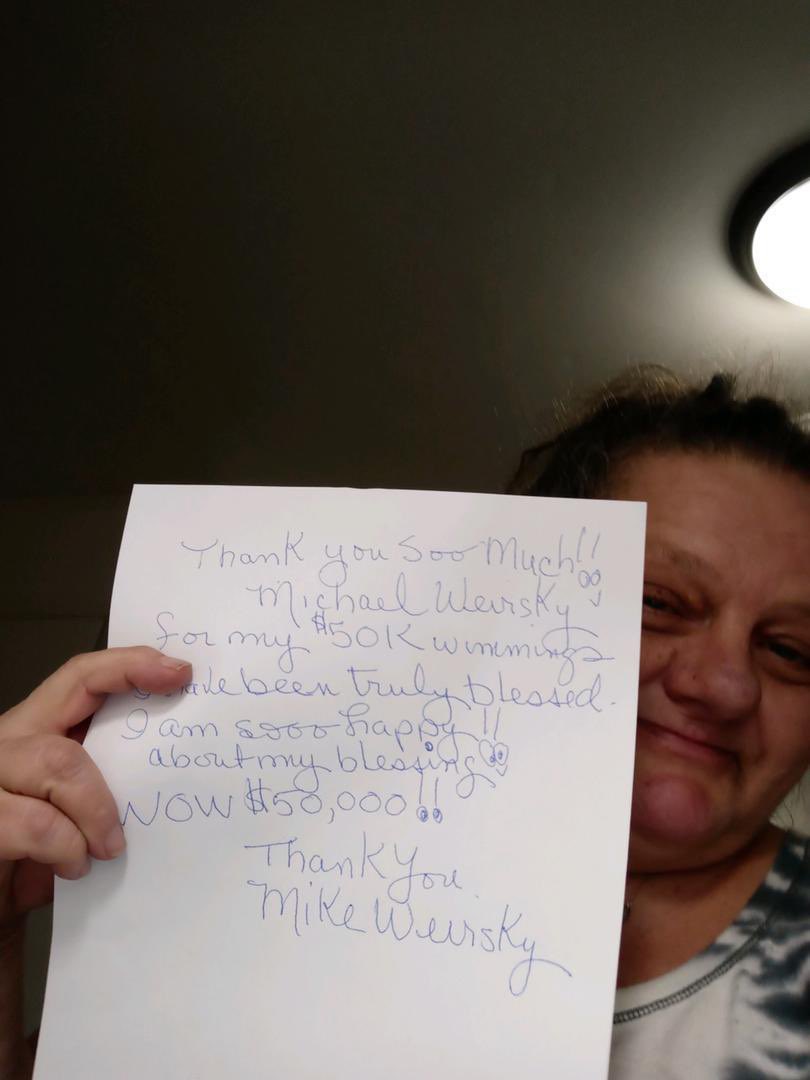 Thank you Soo Much!!
Michael Weirsky
for my $50K winnings
I have been truly blessed.
I am sooo happy!!
about my blessing
WOW $50,000!!
Thank You
Mike Weirsky